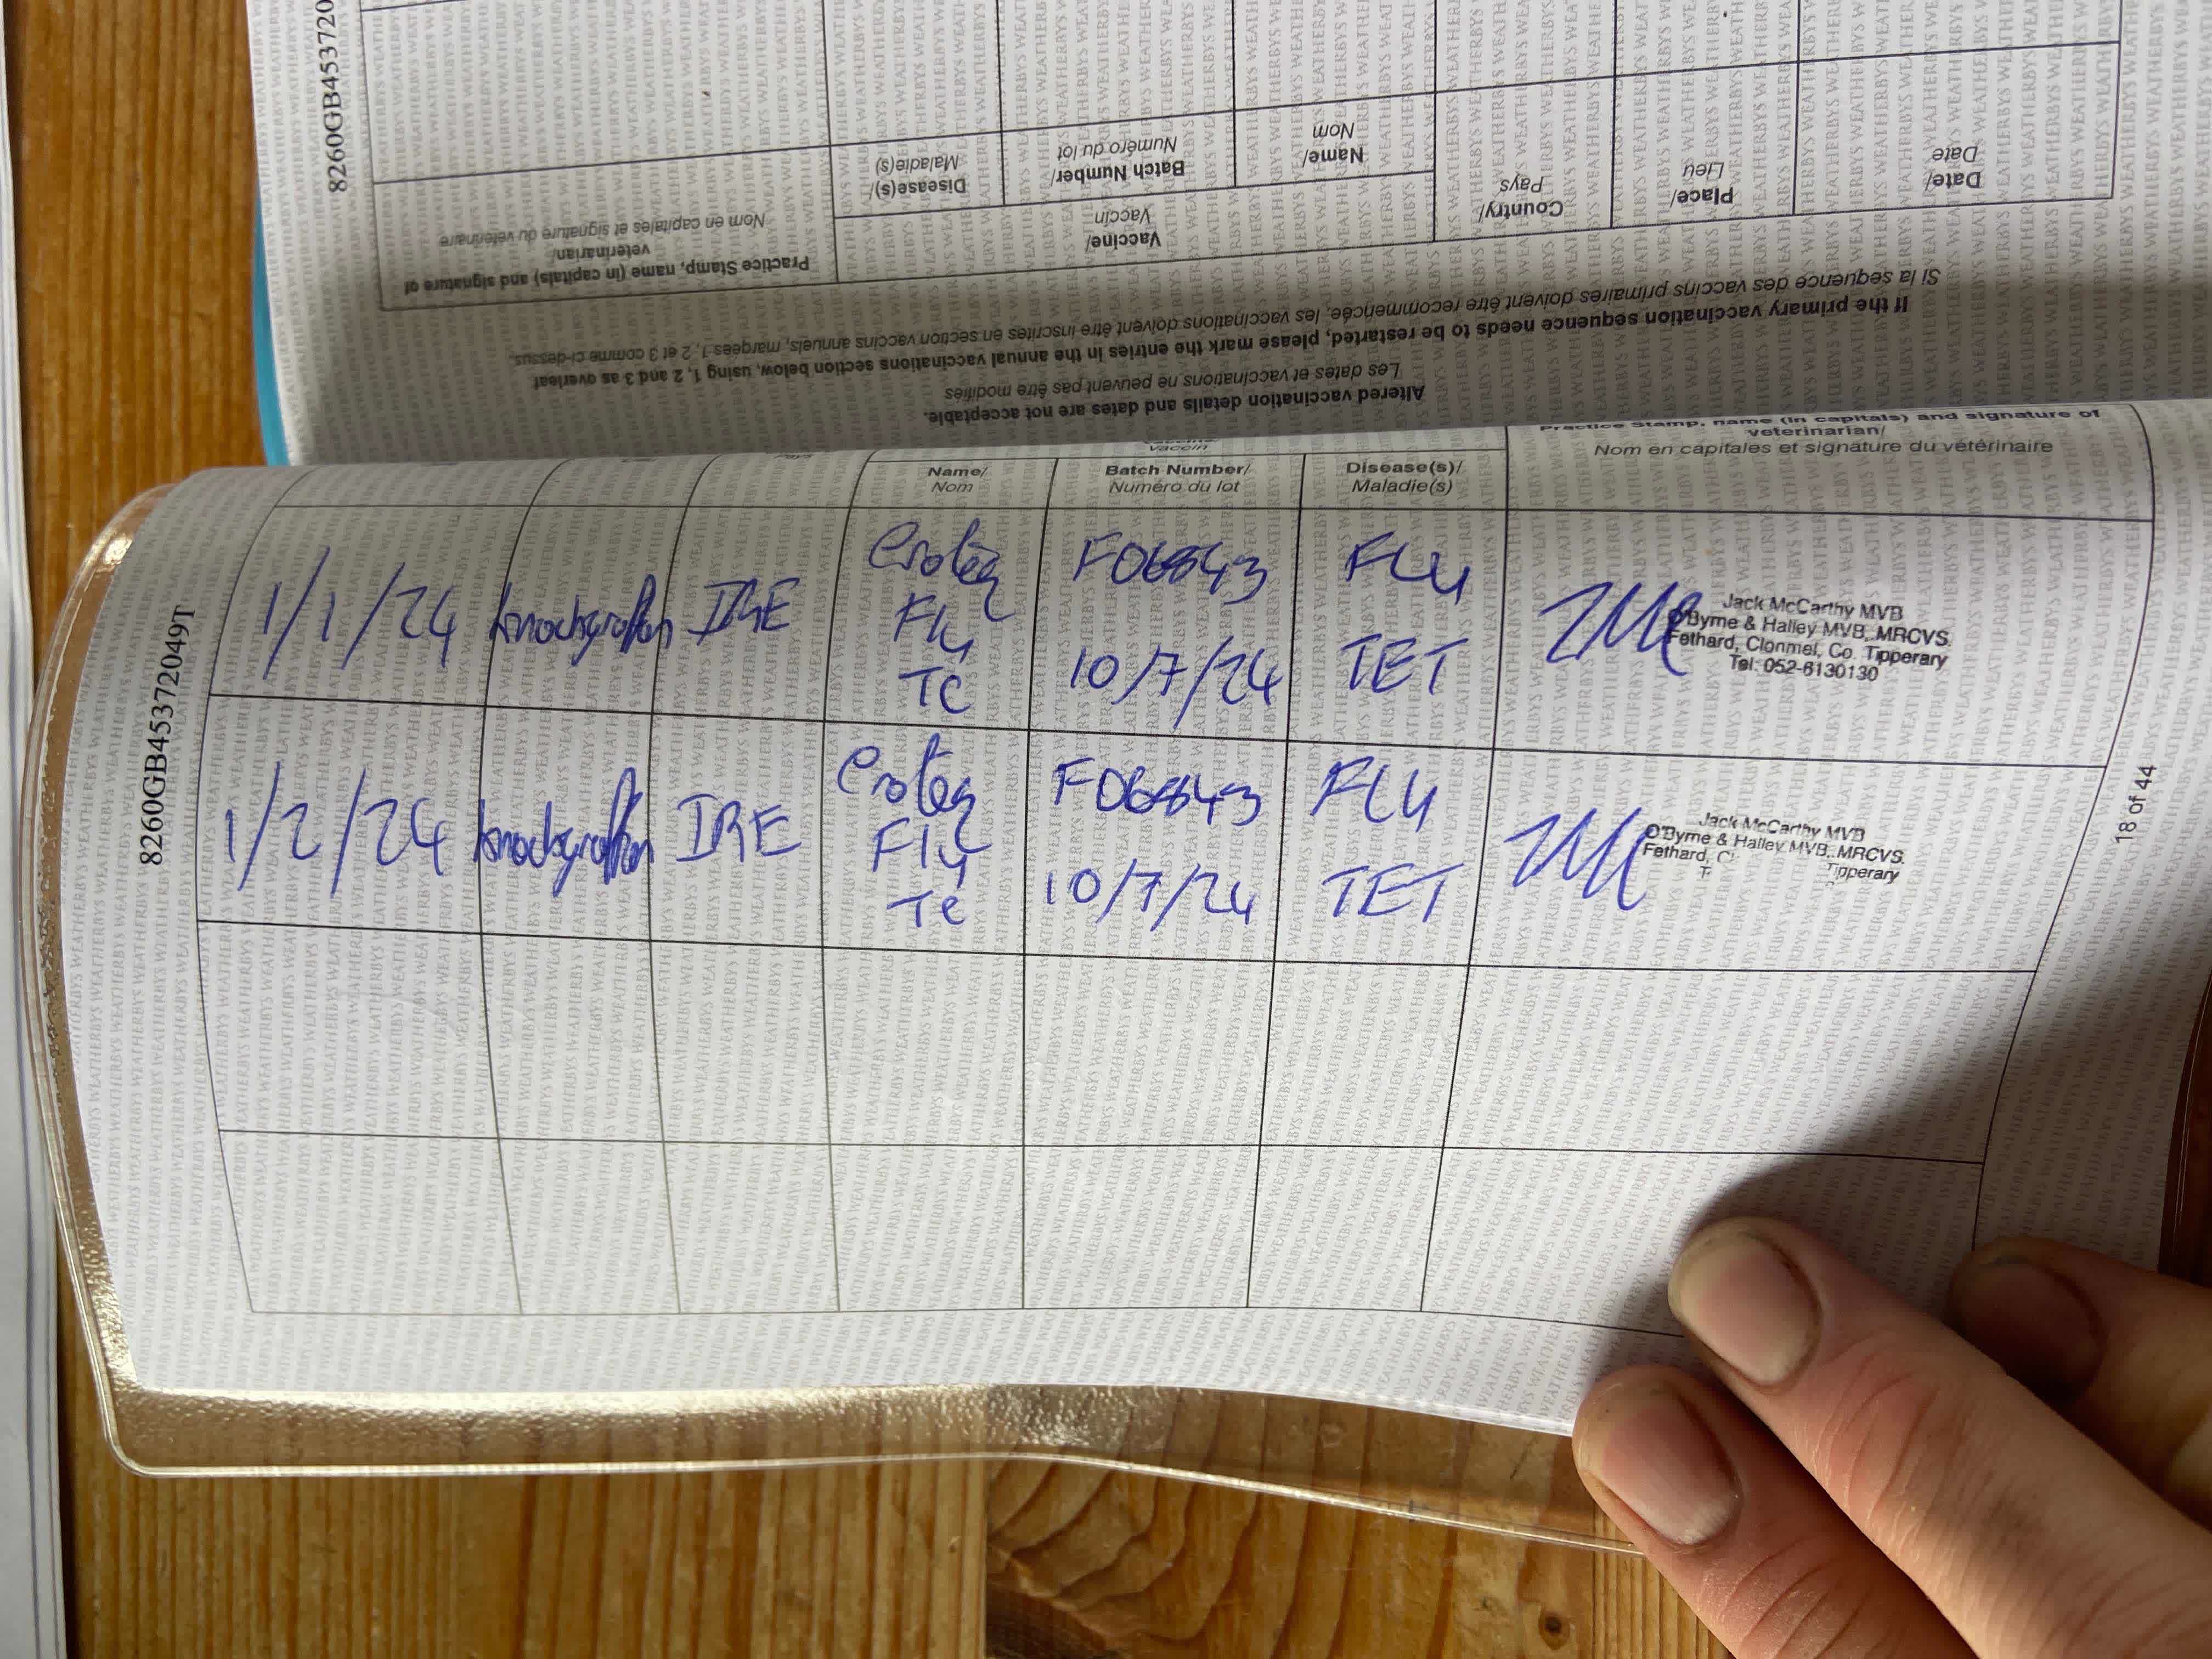 8260GB453720
Practice Stamp, name (in capitals) and signature of
veterinarian/
Nom en capitales et signature du vétérinaire
Vaccine/
Vaccin
Disease(s)/
Maladie(s)
Batch Number/
Numéro du lot
Name/
Nom
Country/
Pays
Place/
Lieu
Date/
Date
If the primary vaccination sequence needs to be restarted, please mark the entries in the annual vaccinations section below, using 1, 2 and 3 as overleaf
Si la sequence des vaccins primaires doivent être recommencée, les vaccinations doivent être inscrites en section vaccins annuels, margées 1, 2 et 3 comme ci-dessus.
Altered vaccination details and dates are not acceptable.
Les dates et vaccinations ne peuvent pas être modifiés
8260GB45372049T
Pays
Vaccin
Name/
Nom
Batch Number/
Numéro du lot
Disease(s)/
Maladie(s)
Practice Stamp, name (in capitals) and signature of
veterinarian/
Nom en capitales et signature du vétérinaire
1/1/24 knockgraffon IRE
Proteq
Flu
Te
F06843
10/7/24
FLU
TET
Jack McCarthy MVB
O'Byrne & Halley MVB, MRCVS.
Fethard, Clonmel, Co. Tipperary
Tel: 052-6130130
1/2/24 knockgraffon IRE
Proteq
Flu
Te
F06843
10/7/24
FLU
TET
Jack McCarthy MVB
O'Byrne & Halley MVB, MRCVS.
Fethard, Tipperary
18 of 44